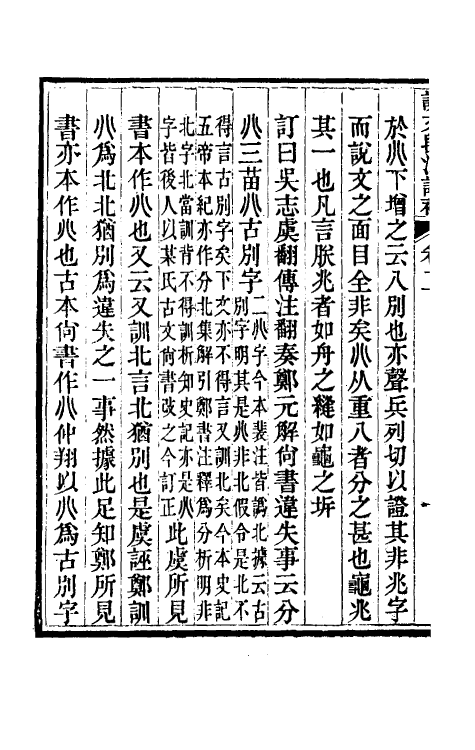 於𠔁下增之云八別也亦聲兵列切以證其非兆字
而說文之面目全非矣𠔁从重八者分之甚也龜兆
其一也凡言朕兆者如舟之縫如龜之坼
訂曰吳志虞翻傳注翻奏鄭元解尙書違失事云分
𠔁三苗𠔁古別字二𠔁字今本裴注皆譌北據云古
別字明其是𠔁非北假令是北不
得言古別字矣下文亦不得言又訓北矣今本史記
五帝本紀亦作分北集解引鄭書注釋爲分析明非
北字北當訓背不得訓析知史記亦是𠔁
字皆後人以某氏古文尙書改之今訂正此虞所見
書本作𠔁也又云又訓北言北猶別也是虞誣鄭訓
𠔁爲北北猶別爲違失之一事然據此足知鄭所見
書亦本作𠔁也古本尙書作𠔁仲翔以𠔁爲古別字